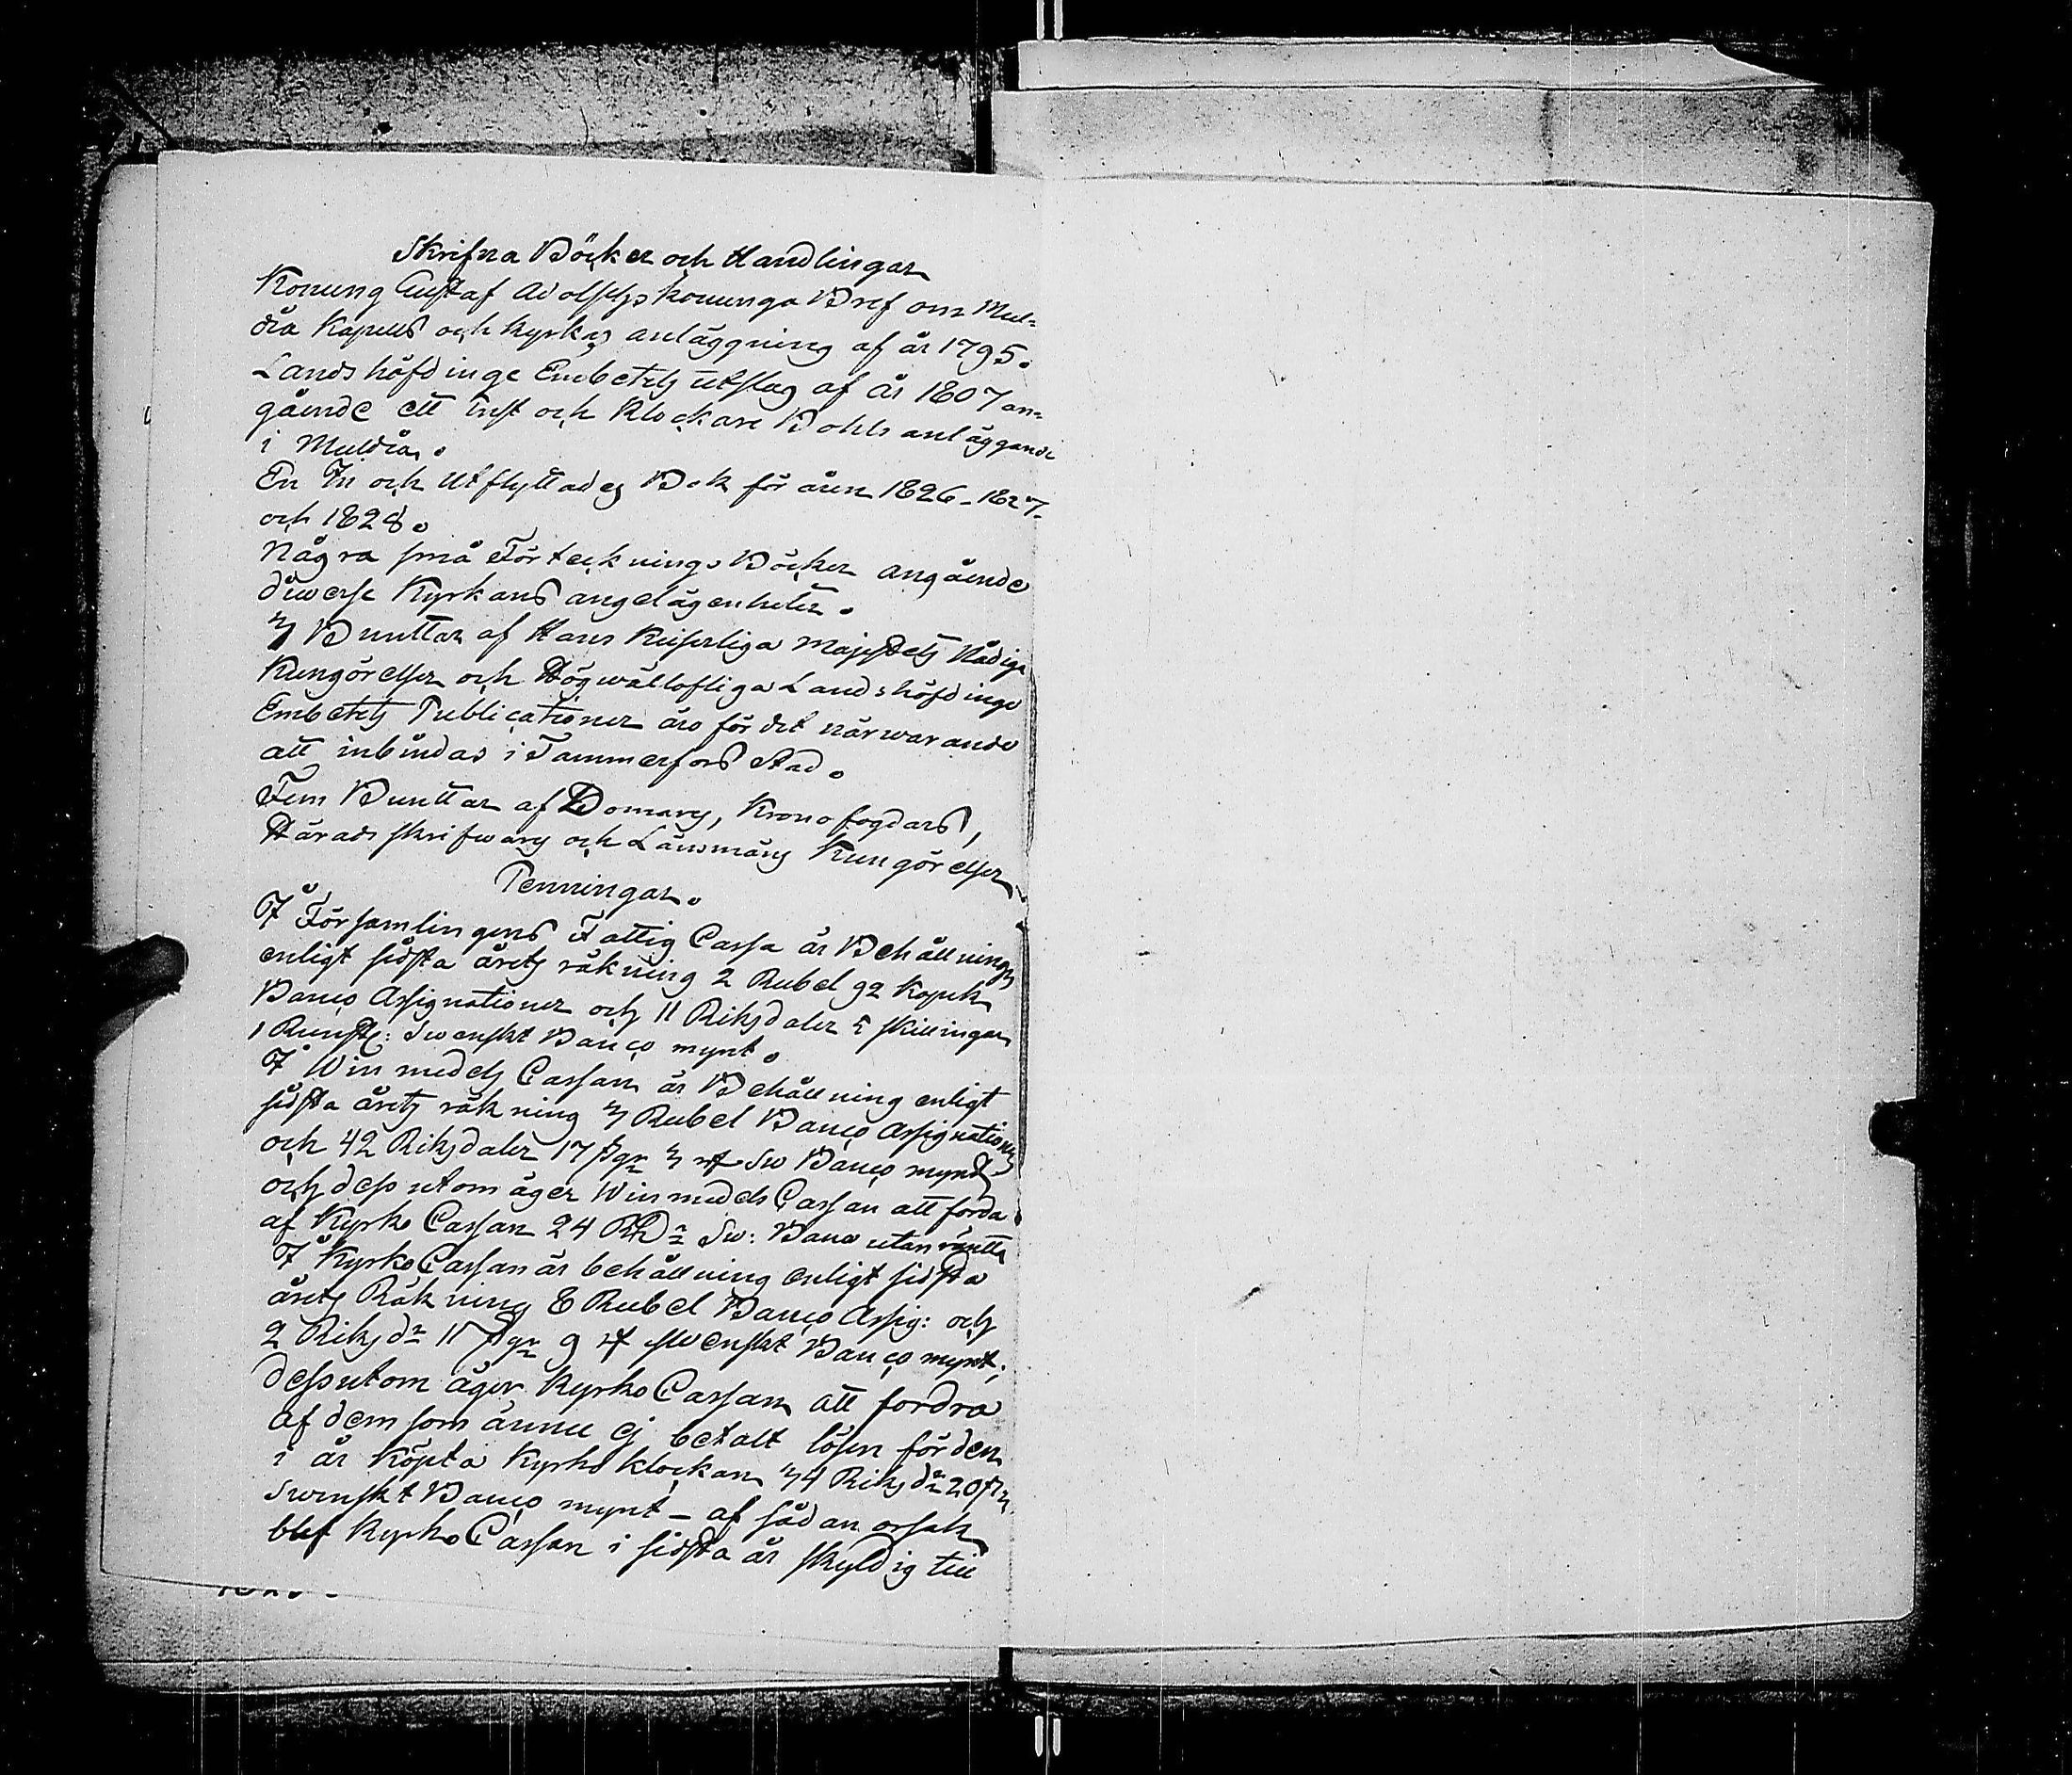 Skrifna Böcker och Handlingar
Konung Gustaf Adolfs konunga Bref om Mul=
dia Kapells och kyrkas anläggning af år 1795.
Landshöfdinge Embetets utslag af år 1807 an=
gående ett och Klockare Bohls anläggande
i Muldia.
En In och Utflyttades Bok för åren 1826 - 1827-
och 1828.
Några små Förtecknings Böcker angående
diwerse Kyrkans angelägenheter.
3 Bunttar af Hans Keiserliga Majestets Nådiga
Kungörelser och Högwällofliga Landshöfdinge
Embetets Publicationer äro för det närwarande
att inbindas i Tammerfors stad.
Fem Bunttar af Domares, Kronofogdars,
Häradsskrifwares och Länsmäns Kungörelser
Penningar.
I Församlingens Fattig Cassa är Behållningen
enligt sidsta årets räkning 2 Rubel 92 Kopek
Banco Assignationer och 11 Riksdaler 5 skillingar
1 Runst: Swenskt Banco mynt.
I Winmedels Cassan är Behållning enligt
sidsta årets räkning 3 Rubel Banco Assignationer
och 42 Riksdaler 17 sgr 3 rst Sw Banco mynt
och dess utom äger Winmedels Cassan att forda
af Kyrko Cassan 24 RDr Sw: Banco utan räntta
I Kyrko Cassan är behållning enligt sidsta
årets Räkning 8 Rubel Banco Assig: och
2 Riksdr 11 sgr 9 rst swenskt Banco mynt;
dessutom äger Kyrko Cassan att fordra
af dem som ännu ej betalt lösen för den
i år köpta Kyrko klockan 34 Riksdr 20 s
Swenskt Banco mynt - af sådan orsak
blef Kyrko Cassan i sidsta år skyldig till